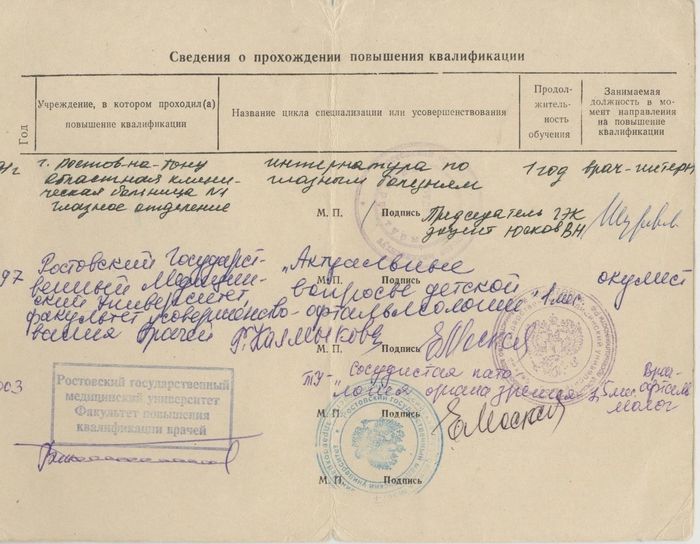 Сведения о прохождении повышения квалификации
Год
Учреждение, в котором проходил(а)
повышение квалификации
Название цикла специализации или усовершенствования
Продол-
житель-
ность
обучения
Занимаемая
должность в мо-
мент направления
на повышение
квалификации
г. Ростов-на-Дону
областная клини-
ческая больница №1
глазное отделение
интернатура по
глазным болезням
1 год
врач-интерн
М. П. Подпись
Председатель ГЭК
доцент Юсков ВН
97
Ростовский Государст-
венный Медицин-
ский Университет,
факультет усовершенство-
вания врачей
„Актуальные
вопросы детской
офтальмологии"
1 мес.
окулист
М. П. Подпись
М. П. Подпись
003
Ростовский государственный
медицинский университет
Факультет повышения
квалификации врачей
ТУ-„Сосудистая пато
логия органа зрения"
Врач-
офталь
молог
М. П. Подпись
М. П. Подпись